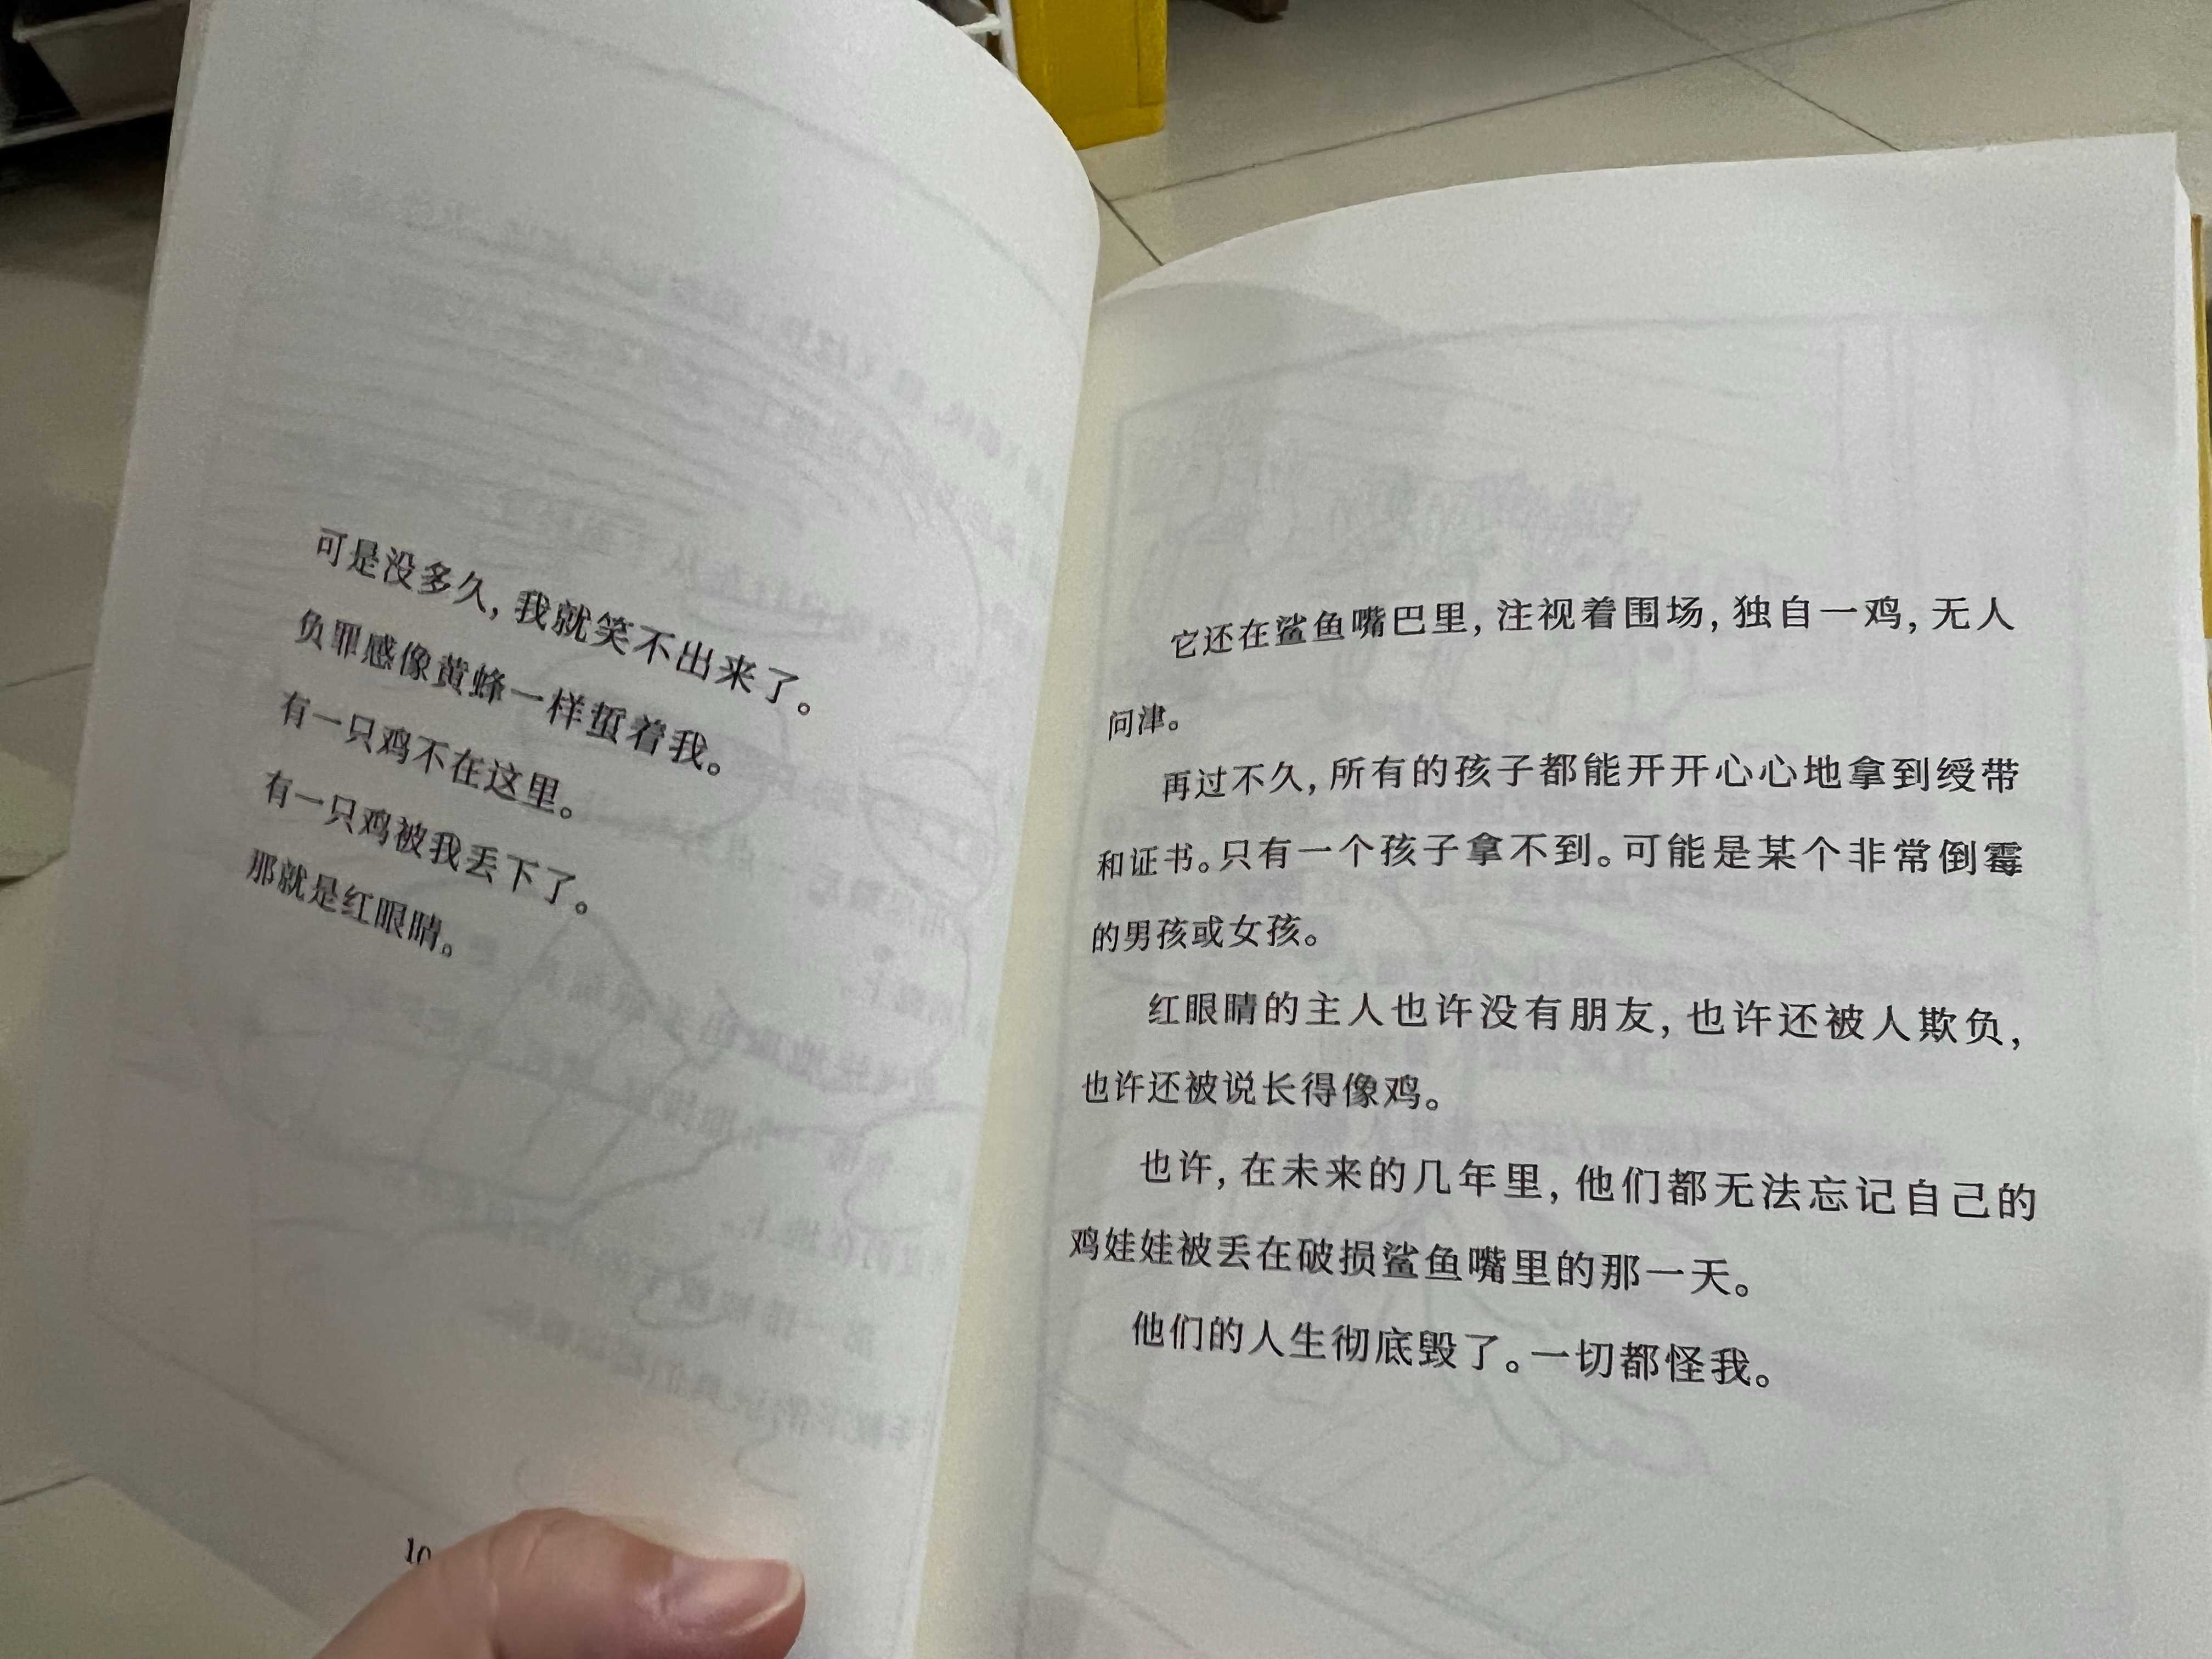 可是没多久，我就笑不出来了。
负罪感像黄蜂一样蜇着我。
有一只鸡不在这里。
有一只鸡被我丢下了。
那就是红眼睛。
10
它还在鲨鱼嘴巴里，注视着围场，独自一鸡，无人
问津。
再过不久，所有的孩子都能开开心心地拿到绶带
和证书。只有一个孩子拿不到。可能是某个非常倒霉
的男孩或女孩。
红眼睛的主人也许没有朋友，也许还被人欺负，
也许还被说长得像鸡。
也许，在未来的几年里，他们都无法忘记自己的
鸡娃娃被丢在破损鲨鱼嘴里的那一天。
他们的人生彻底毁了。一切都怪我。